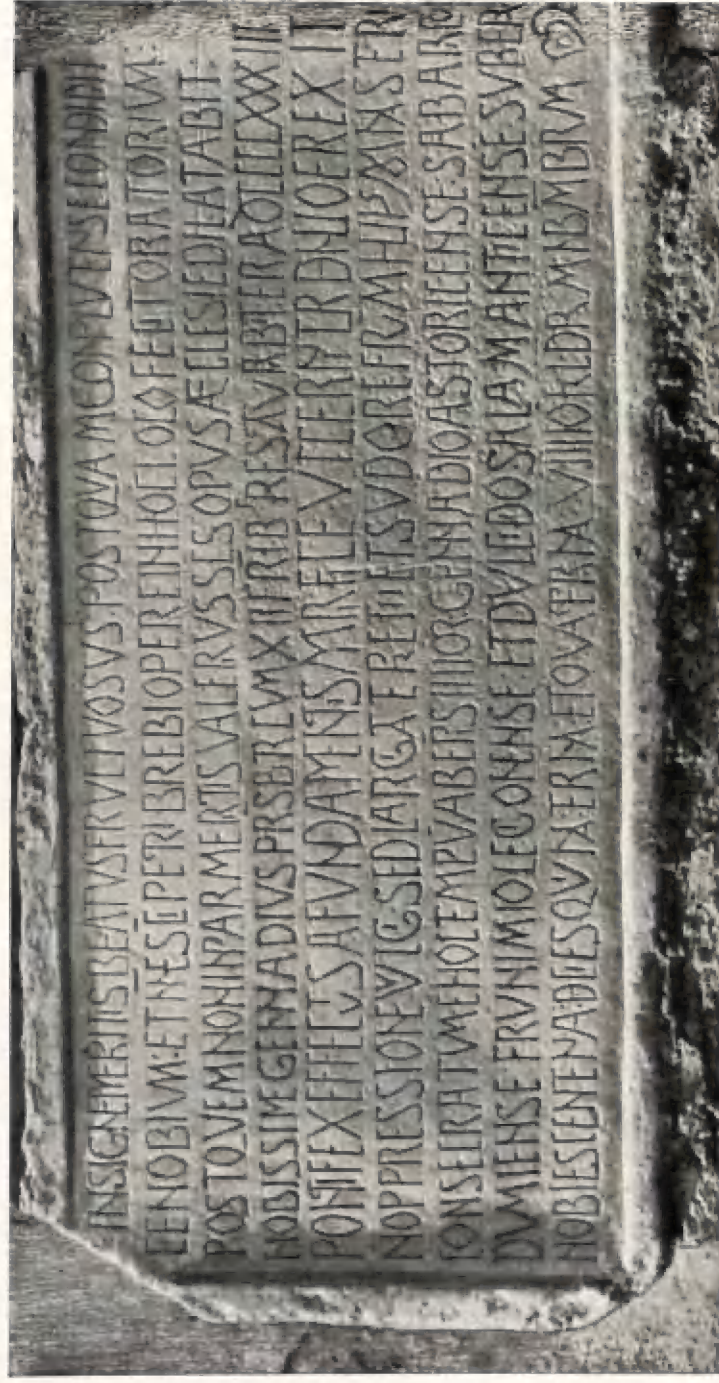 INSIGNE MERITIS BEATUS FRUCTUOSUS POSTQUAM CONPLUTENSE CONDIDIT
CENOBIUM ET NNE SCI PETRI BREBI OPERE IN HOC LOCO FECIT ORATORIUM
POST QUEM NON INPAR MERITIS VALERIUS SCS OPUS AECLESIE DILATABIT
NOBISSIME GENNADIUS PRSBR CUM XII FRIB RESTAVABIT ERA DCCCCXXXIII
PONTIFEX EFFECTUS A FUNDAMENTIS MIRIFICE UT CERNITUR DENUO EREXIT
NON OPPRESSIONE VULGI SED LARGA PRETII ET SUDORE FRUM HUIUS
CONSECRATUM E HOC TEMPU AB EPIS IIII GENNADIO ASTORICENSE SABARICO
DUMIENSE FRUNIMIO LEGONENSE ET DULCIDIO SALAMANTICENSE SUB ER
NOBIES CENTENA DECIES QUINA TERNA ET QUATERNA VIIII